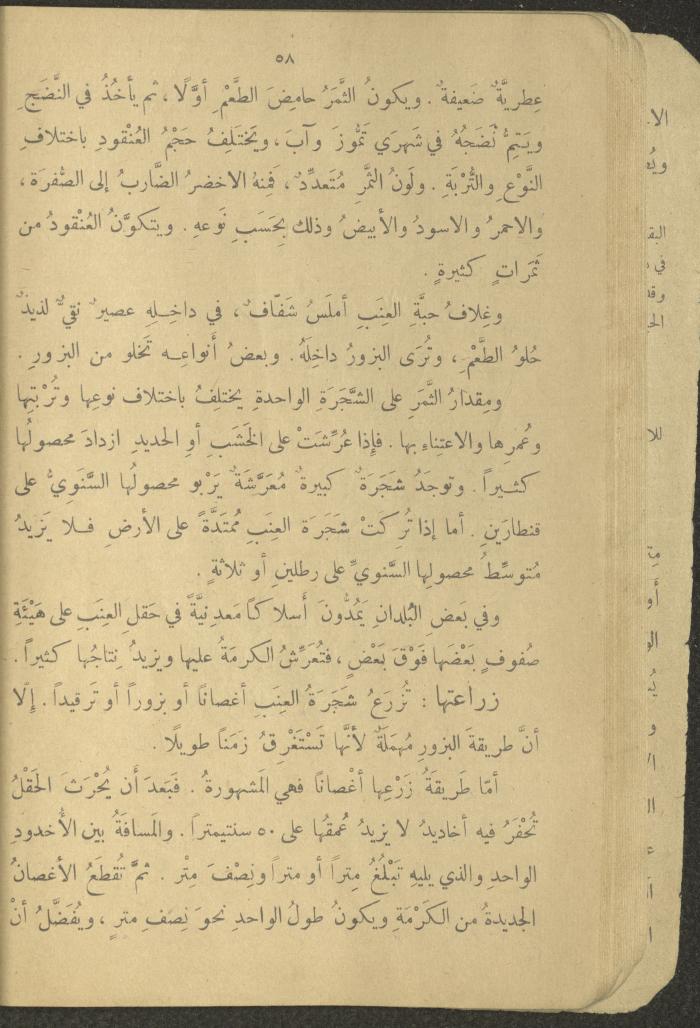 ٥٨
عِطريَّةٌ ضَعيفةٌ . ويكونُ الثَّمَرُ حامِضَ الطَّعْمِ أوَّلًا ، ثم يأخُذُ في النَّضَجِ
ويَتِمُّ نُضجُهُ في شَهرَي تَمُّوزَ وآبَ ، ويَختَلِفُ حَجْمُ العُنْقودِ باختلافِ
النَّوْعِ والتُّرْبَةِ . ولَونُ الثَّمَرِ مُتَعدِّدٌ ، فَمِنهُ الاخضرُ الضَّاربُ إلى الصُّفرَة ،
والاحمرُ والاسودُ والأبيضُ وذلك بِحَسَبِ نَوعهِ . ويتكوَّنُ العُنْقودُ من
ثَمَراتٍ كثيرةٍ .
وغِلافُ حبَّةِ العِنَبِ أملَسُ شَفّافٌ ، في داخِلِهِ عصيرٌ نقيٌّ لذيذٌ
حُلوُ الطَّعْمِ ، وتُرَى البزورُ داخِلَهُ . وبعضُ أنواعِه تَخلو من البزورِ .
ومِقدارُ الثَّمَرِ على الشَّجَرَةِ الواحدةِ يختلِفُ باختلاف نوعِها وتُرْبتِها
وعُمرِها والاعتِناءِ بها . فإذا عُرِّشَتْ على الخَشَبِ أوِ الحديدِ ازدادَ محصولُها
كثيراً . وتوجَدُ شَجَرَةٌ كبيرةٌ مُعَرَّشَةٌ يَرْبو محصولُها السَّنَويُّ على
قنطارَينِ . أما إذا تُرِكتْ شَجَرَة العِنَبِ مُمتَدَّةً على الأرضِ فلا يَزيدُ
مُتوسِّطُ محصولِها السَّنويِّ على رطلينِ أو ثلاثةٍ .
وفي بَعضِ البُلدانِ يَمُدُّونَ أسلاكًا مَعدِنيَّةً في حَقلِ العِنَبِ على هَيْئَةِ
صُفوفٍ بَعْضُها فَوْقَ بَعْضٍ ، فتُعَرِّشُ الكرمَةُ عليها ويزيدُ نِتاجُها كثيراً .
زراعتها : تُزرَعُ شَجَرَةُ العِنَبِ أغصانًا أو بزوراً أو تَرقيداً . إلّا
أنَّ طريقةَ البزورِ مُهمَلَةٌ لأنَّها تَسْتَغْرِقُ زمَناً طويلًا .
أمّا طَريقةُ زَرْعِها أغْصانًا فهي المَشهورةُ . فَبَعدَ أن يُحْرَثَ الحَقْلُ
تُحْفَرُ فيه أخاديدُ لا يزيدُ عُمقُها على ٥٠ سنتيمتراً . والمَسافَةُ بين الأُخدودِ
الواحدِ والذي يليهِ تَبْلُغُ مِتراً أو متراً ونِصْفَ مِتْر . ثمَّ تُقطَعُ الأغصانُ
الجديدةُ من الكَرْمَةِ ويكونُ طولُ الواحدِ نحوَ نِصفِ مترٍ ، ويُفَضَّلُ أنْ